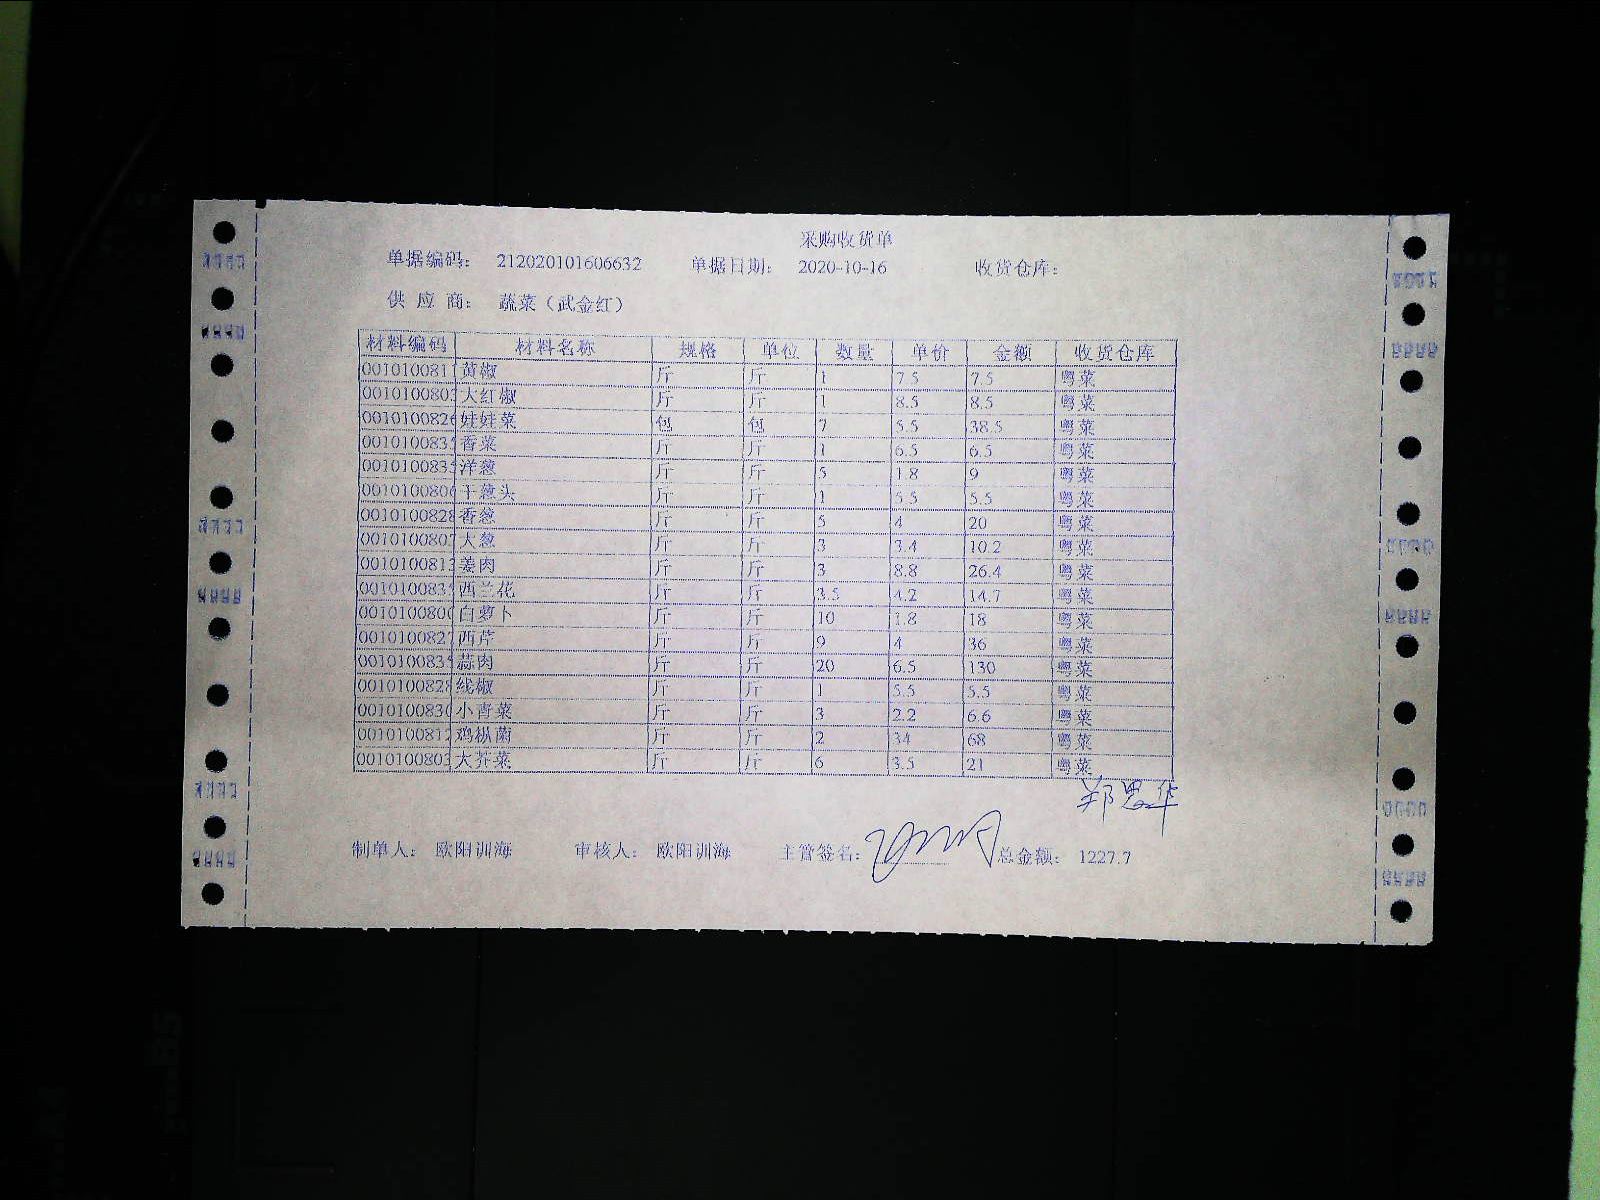 采购收货单
单据编码: 212020101606632 单据日期: 2020-10-16 收货仓库:
供应商: 蔬菜（武金红）
材料编码 材料名称 规格 单位 数量 单价 金额 收货仓库
001010081 黄椒 斤 斤 1 7.5 7.5 粤菜
001010080 大红椒 斤 斤 1 8.5 8.5 粤菜
001010082 娃娃菜 包 包 7 5.5 38.5 粤菜
001010083 香菜 斤 斤 1 6.5 6.5 粤菜
001010083 洋葱 斤 斤 5 1.8 9 粤菜
001010080 干葱头 斤 斤 1 5.5 5.5 粤菜
0010100828 香葱 斤 斤 5 4 20 粤菜
001010080 大葱 斤 斤 3 3.4 10.2 粤菜
001010081 姜肉 斤 斤 3 8.8 26.4 粤菜
001010083 西兰花 斤 斤 3.5 4.2 14.7 粤菜
001010080 白萝卜 斤 斤 10 1.8 18 粤菜
001010082 西芹 斤 斤 9 4 36 粤菜
001010083 蒜肉 斤 斤 20 6.5 130 粤菜
001010082 线椒 斤 斤 1 5.5 5.5 粤菜
001010083 小青菜 斤 斤 3 2.2 6.6 粤菜
001010081 鸡枞菌 斤 斤 2 34 68 粤菜
001010080 大芥菜 斤 斤 6 3.5 21 粤菜
郑思华
制单人: 欧阳训海 审核人: 欧阳训海 主管签名: 总金额: 1227.7